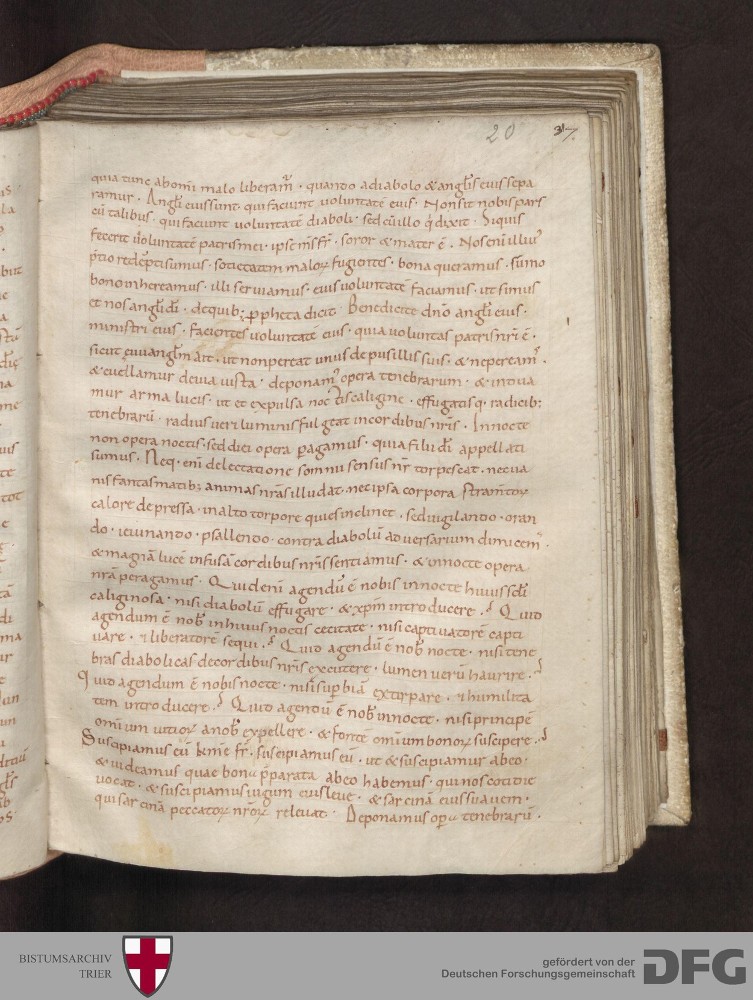 20 37.
quia tunc abomi malo liberam̅ · quando adiabolo & angl̅is eius sepa
ramur · Angl̅i eius sunt · qui faciunt voluntate̅ eius · Non sit nobis pars
cu̅ talibus · qui faciunt voluntate̅ diaboli · sed cu̅ illo q̅ dixit · Siquis
fecerit voluntate̅ patris mei · ipse m̅s fr̅ · soror & mater e̅ · Nos eni̅ illiu᾽
p̅tio rede̅pti sumus · societatem maloꝝ fugientes · bona queramus · su̅mo
bono inhereamus · illi seruiamus · eius voluntate̅ faciamus · ut simus
et nos angl̅i d̅i · de quib; ꝓpheta dicit · Benedicite dn̅o angl̅i eius ·
ministri eius · facientes voluntate̅ eius · quia voluntas patris nr̅i e̅ ·
sicut euuangl̅m ait · ut non pereat unus de pusillis suis · & ne peream᾽ ·
& euellamur de uia iusta · deponam᾽ opera tenebrarum · & indua
mur arma lucis · ut et expulsa noctis caligine · effugatisq · radicib;
tenebraru̅ · radius ueri luminis fulgeat in cordibus nr̅is · In nocte
non opera noctis · sed diei opera ꝑagamus · quia filii d̅i appellati
sumus · Neq · eni̅ delectatione somni sensus nr̅ torpescat · nec ua
nis fantasmatib; animas nr̅as illudat · nec ipsa corpora
calore depressa · in alto torpore quies inclinet · sed uigilando · oran
do · ieiunando · psallendo · contra diabolu̅ aduersarium dimicem᾽ ·
& magna̅ luce̅ infusa̅ cordibus nr̅is sentiamus · & in nocte opera
nr̅a peragamus · Quid eni̅ agendu̅ e̅ nobis in nocte huius scl̅i
caliginosa · nisi diabolu̅ effugare · & xp̅m introducere · Quid
agendum e̅ nob̅ in huius noctis cecitate · nisi captiuatore̅ capti
uare · & liberatore̅ sequi · Quid agendu̅ e̅ nob̅ nocte · nisi tene
bras diabolicas de cordibus nr̅is excutere · lumen ueru̅ haurire ·
Quid agendum e̅ nobis nocte · nisi sup̅bia̅ extirpare · & humilita
tem introducere · Quid agendu̅ e̅ nob̅ in nocte · nisi principe̅
omnium uitioꝝ a nob̅ expellere · & fonte̅ omnium bonoꝝ suscipere ·
Suscipiamus eu̅ km̅e fr̅ · suscipiamus eu̅ · ut & suscipiamur ab eo ·
& uideamus quae bona p̅parata ab eo habemus · qui nos cotidie
uocat · & suscipiamus iugum eius leue · & sarcina̅ eius suauem ·
qui sarcina̅ peccatoꝝ nr̅oꝝ releuat · Deponamus opa tenebraru̅ ·
BISTUMSARCHIV
TRIER
gefördert von der
Deutschen Forschungsgemeinschaft
DFG